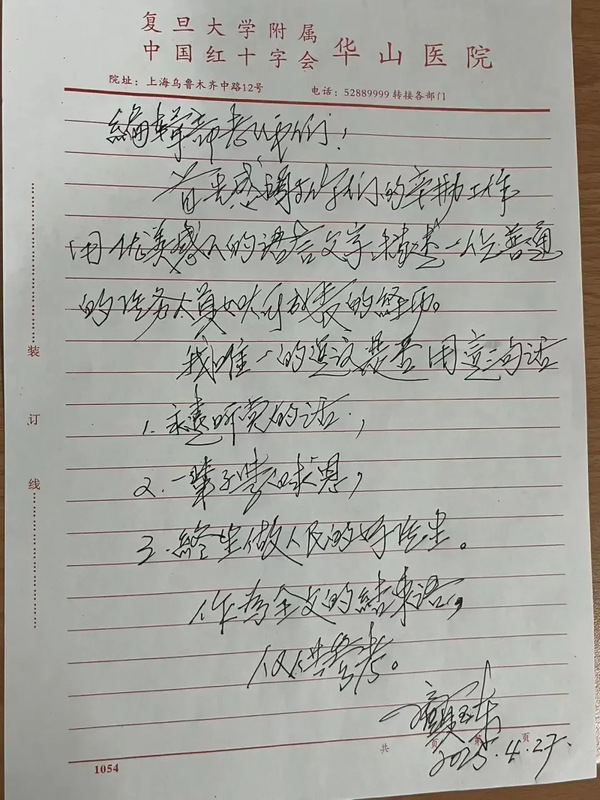 复旦大学附属
中国红十字会 华山医院
院址：上海乌鲁木齐中路12号 电话：52889999 转接各部门
编辑部老师们！
首先感谢你们的辛勤工作
用优美感人的语言文字描述一位普通
的医务人员如何成长的经历。
我唯一的建议是否用这三句话
1. 永远听党的话，
2. 一辈子实事求是，
3. 终生做人民的好医生。
作为全文的结束语，
仅供参考。
2025.4.27.
装
订
线
共 页 第 页
1054